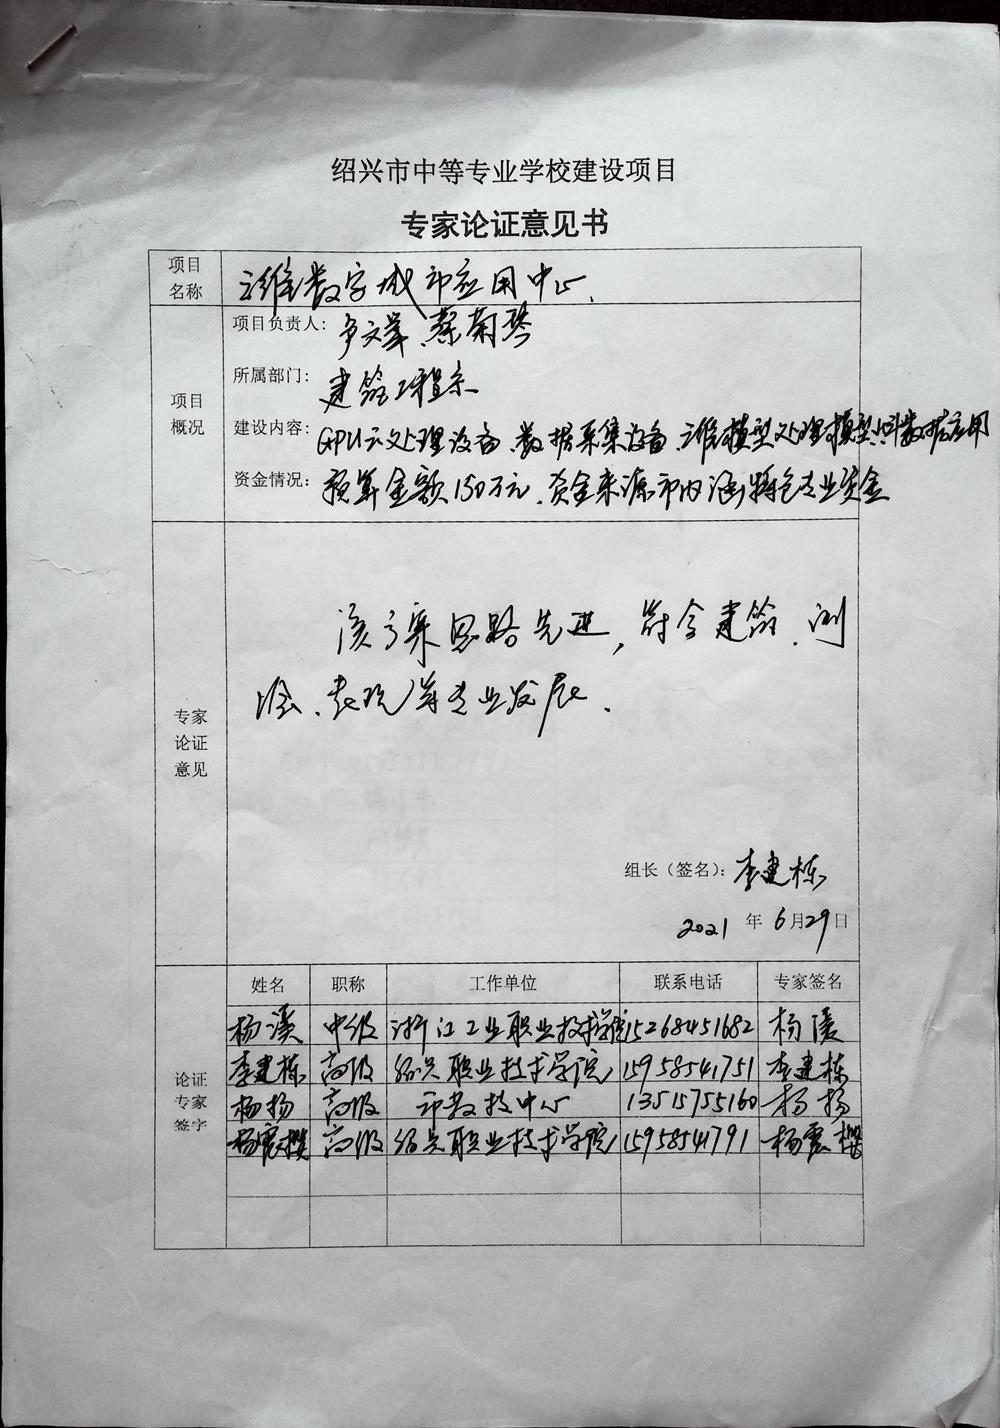 绍兴市中等专业学校建设项目
专家论证意见书
项目名称 三维数字城市应用中心
项目概况
项目负责人: 文峰、蔡菊琴
所属部门: 建筑工程系
建设内容: GPU云处理设备、数据采集设备、三维模型处理模型、数据应用
资金情况: 预算金额150万元、资金来源市内涵特色专业资金
专家论证意见
该方案思路先进,符合建筑、测
绘、表现等专业发展.
组长(签名): 李建栋
2021年6月29日
论证专家签字
姓名 职称 工作单位 联系电话 专家签名
杨溪 中级 浙江工业职业技术学院 15268451682 杨溪
李建栋 高级 绍兴职业技术学院 15958541751 李建栋
杨扬 高级 市教技中心 13515755160 杨扬
杨震樱 高级 绍兴职业技术学院 15958541791 杨震樱